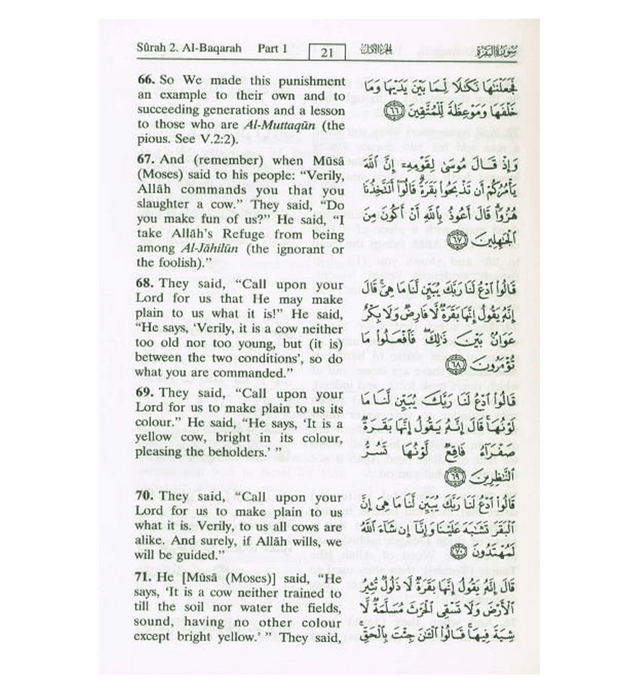 Sûrah 2. Al-Baqarah Part 1
21
الجزء الأول
سورة البقرة
66. So We made this punishment
an example to their own and to
succeeding generations and a lesson
to those who are Al-Muttaqûn (the
pious. See V.2:2).
67. And (remember) when Mûsâ
(Moses) said to his people: “Verily,
Allâh commands you that you
slaughter a cow.” They said, “Do
you make fun of us?” He said, “I
take Allâh's Refuge from being
among Al-Jâhilûn (the ignorant or
the foolish).”
68. They said, “Call upon your
Lord for us that He may make
plain to us what it is!” He said,
“He says, ‘Verily, it is a cow neither
too old nor too young, but (it is)
between the two conditions’, so do
what you are commanded.”
69. They said, “Call upon your
Lord for us to make plain to us its
colour.” He said, “He says, ‘It is a
yellow cow, bright in its colour,
pleasing the beholders.’ ”
70. They said, “Call upon your
Lord for us to make plain to us
what it is. Verily, to us all cows are
alike. And surely, if Allâh wills, we
will be guided.”
71. He [Mûsâ (Moses)] said, “He
says, ‘It is a cow neither trained to
till the soil nor water the fields,
sound, having no other colour
except bright yellow.’ ” They said,
فَجَعَلْنَٰهَا نَكَٰلًا لِّمَا بَيْنَ يَدَيْهَا وَمَا
خَلْفَهَا وَمَوْعِظَةً لِّلْمُتَّقِينَ ٦٦
وَإِذْ قَالَ مُوسَىٰ لِقَوْمِهِۦٓ إِنَّ ٱللَّهَ
يَأْمُرُكُمْ أَن تَذْبَحُوا۟ بَقَرَةً ۖ قَالُوٓا۟ أَتَتَّخِذُنَا
هُزُوًا ۖ قَالَ أَعُوذُ بِٱللَّهِ أَنْ أَكُونَ مِنَ
ٱلْجَٰهِلِينَ ٦٧
قَالُوا۟ ٱدْعُ لَنَا رَبَّكَ يُبَيِّن لَّنَا مَا هِىَ ۚ قَالَ
إِنَّهُۥ يَقُولُ إِنَّهَا بَقَرَةٌ لَّا فَارِضٌ وَلَا بِكْرٌ
عَوَانٌۢ بَيْنَ ذَٰلِكَ ۖ فَٱفْعَلُوا۟ مَا
تُؤْمَرُونَ ٦٨
قَالُوا۟ ٱدْعُ لَنَا رَبَّكَ يُبَيِّن لَّنَا مَا
لَوْنُهَا ۚ قَالَ إِنَّهُۥ يَقُولُ إِنَّهَا بَقَرَةٌ
صَفْرَآءُ فَاقِعٌ لَّوْنُهَا تَسُرُّ
ٱلنَّٰظِرِينَ ٦٩
قَالُوا۟ ٱدْعُ لَنَا رَبَّكَ يُبَيِّن لَّنَا مَا هِىَ إِنَّ
ٱلْبَقَرَ تَشَٰبَهَ عَلَيْنَا وَإِنَّآ إِن شَآءَ ٱللَّهُ
لَمُهْتَدُونَ ٧٠
قَالَ إِنَّهُۥ يَقُولُ إِنَّهَا بَقَرَةٌ لَّا ذَلُولٌ تُثِيرُ
ٱلْأَرْضَ وَلَا تَسْقِى ٱلْحَرْثَ مُسَلَّمَةٌ لَّا
شِيَةَ فِيهَا ۚ قَالُوا۟ ٱلْـَٰٔنَ جِئْتَ بِٱلْحَقِّ ۚ